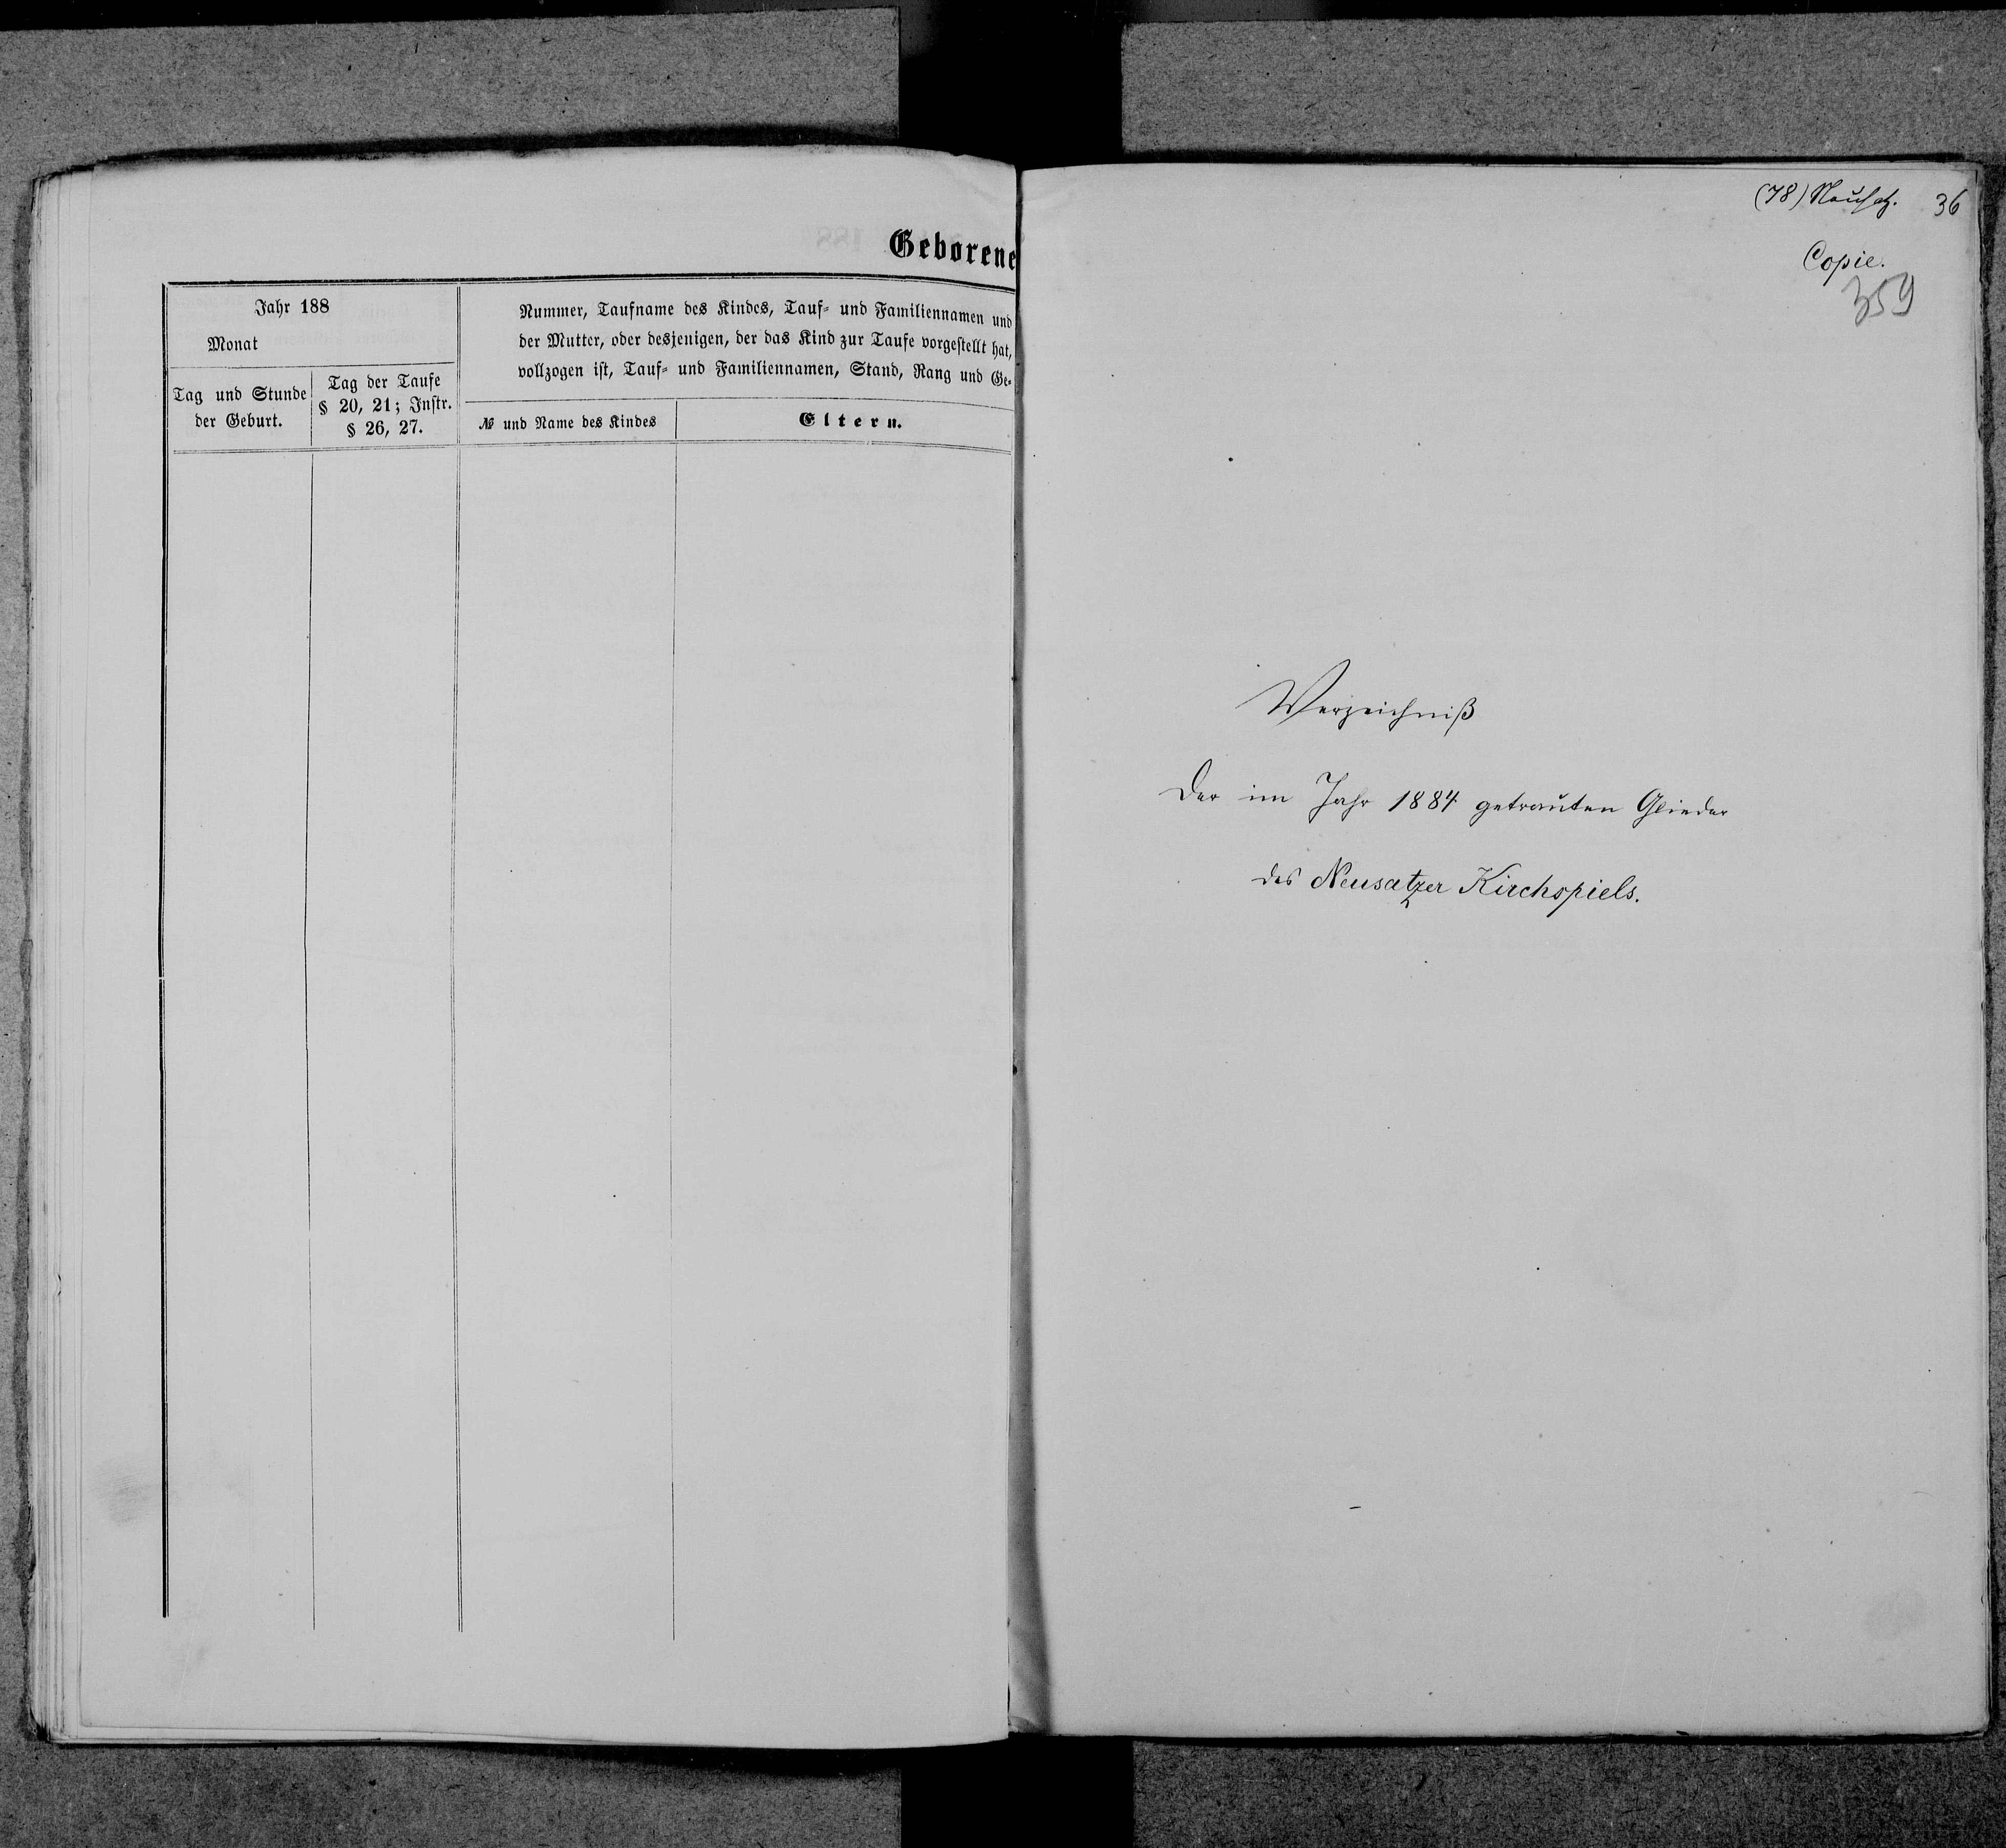 Geborene
Jahr 188
Monat
Tag und Stunde
der Geburt.
Tag der Taufe
§ 20, 21; Instr.
§ 26, 27.
Nummer, Taufname des Kindes, Tauf- und Familiennamen und
der Mutter, oder desjenigen, der das Kind zur Taufe vorgestellt hat,
vollzogen ist, Tauf- und Familiennamen, Stand, Rang und Ge-
№ und Name des Kindes
Eltern.
(78) Neusatz. 36
Copie.
359
Verzeichniß
Der im Jahr 1884 getrauten Glieder
des Neusatzer Kirchspiels.